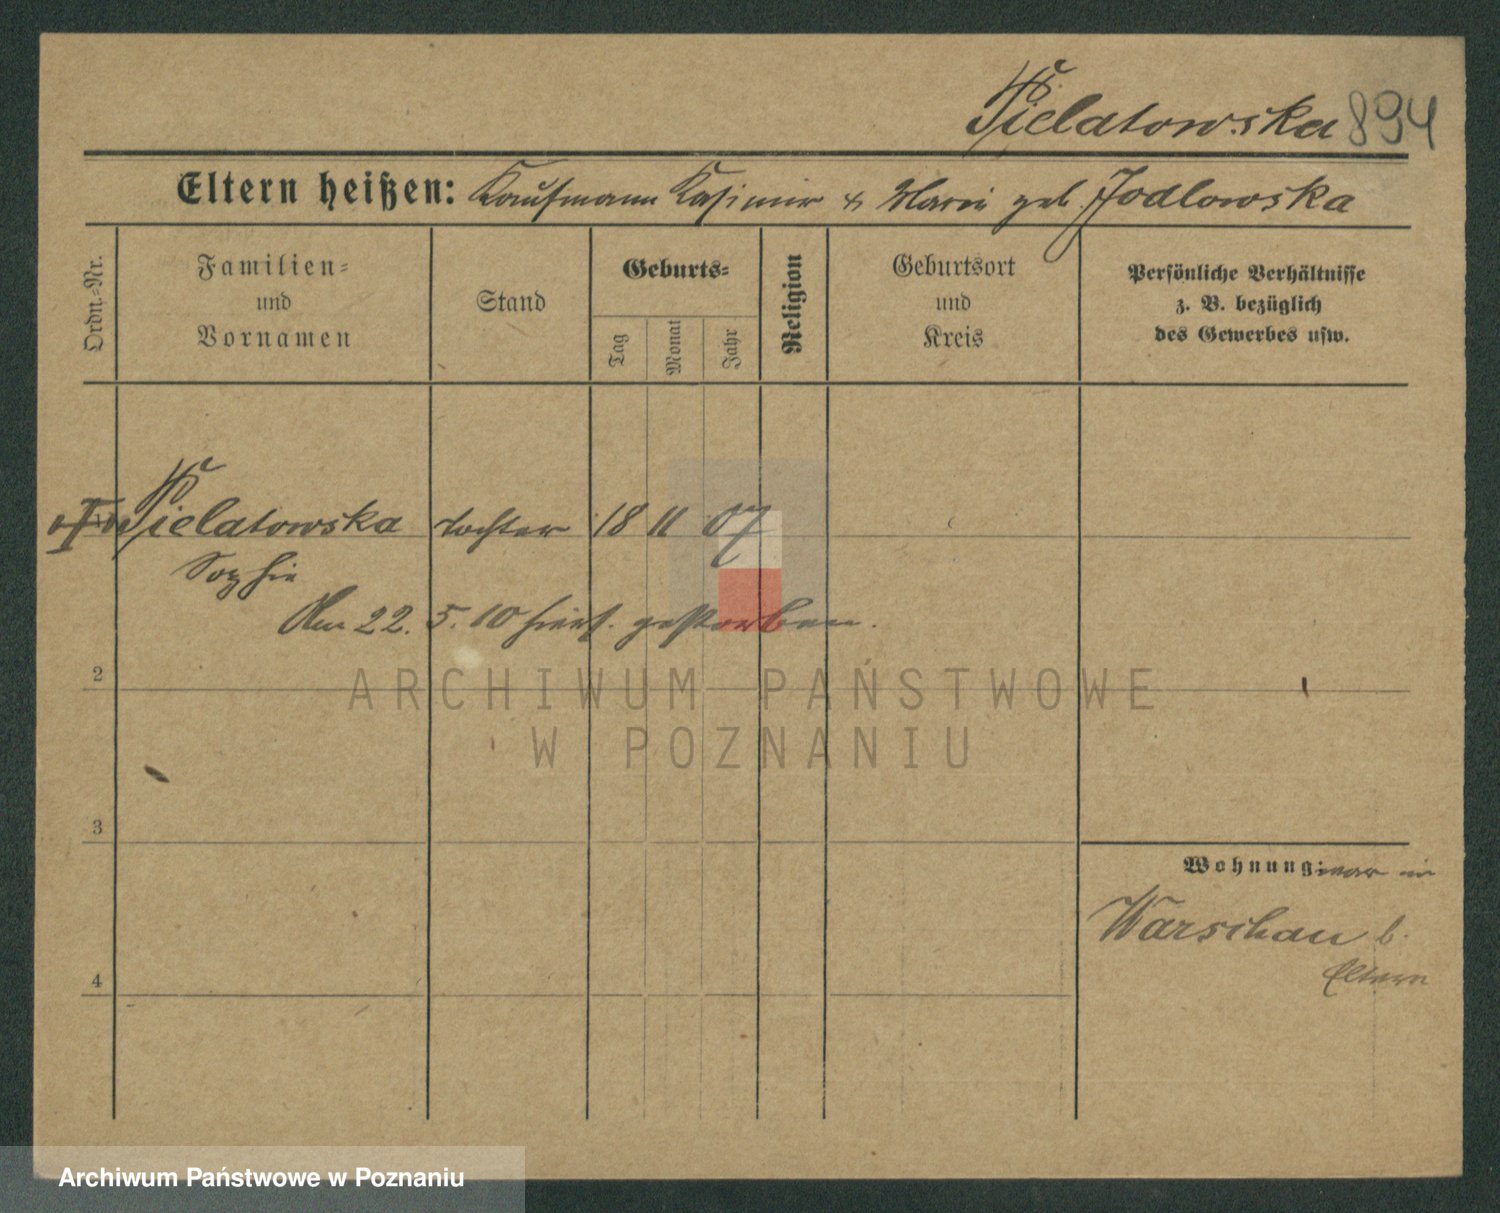 Pielatowska 894
Eltern heißen: Kaufmann Kasimir & Marie geb. Jodlowska
Ordn.-Nr.
Familien-
und
Vornamen
Stand
Geburts-
Tag
Monat
Jahr
Religion
Geburtsort
und
Kreis
Persönliche Verhältnisse
z. B. bezüglich
des Gewerbes usw.
Pielatowska tochter 18 11 07
Sophie
Am 22. 5. 10 hiers. gestorben.
2
ARCHIWUM PAŃSTWOWE
W POZNANIU
3
Wohnung: war in
Warschau b.
Eltern
4
Archiwum Państwowe w Poznaniu